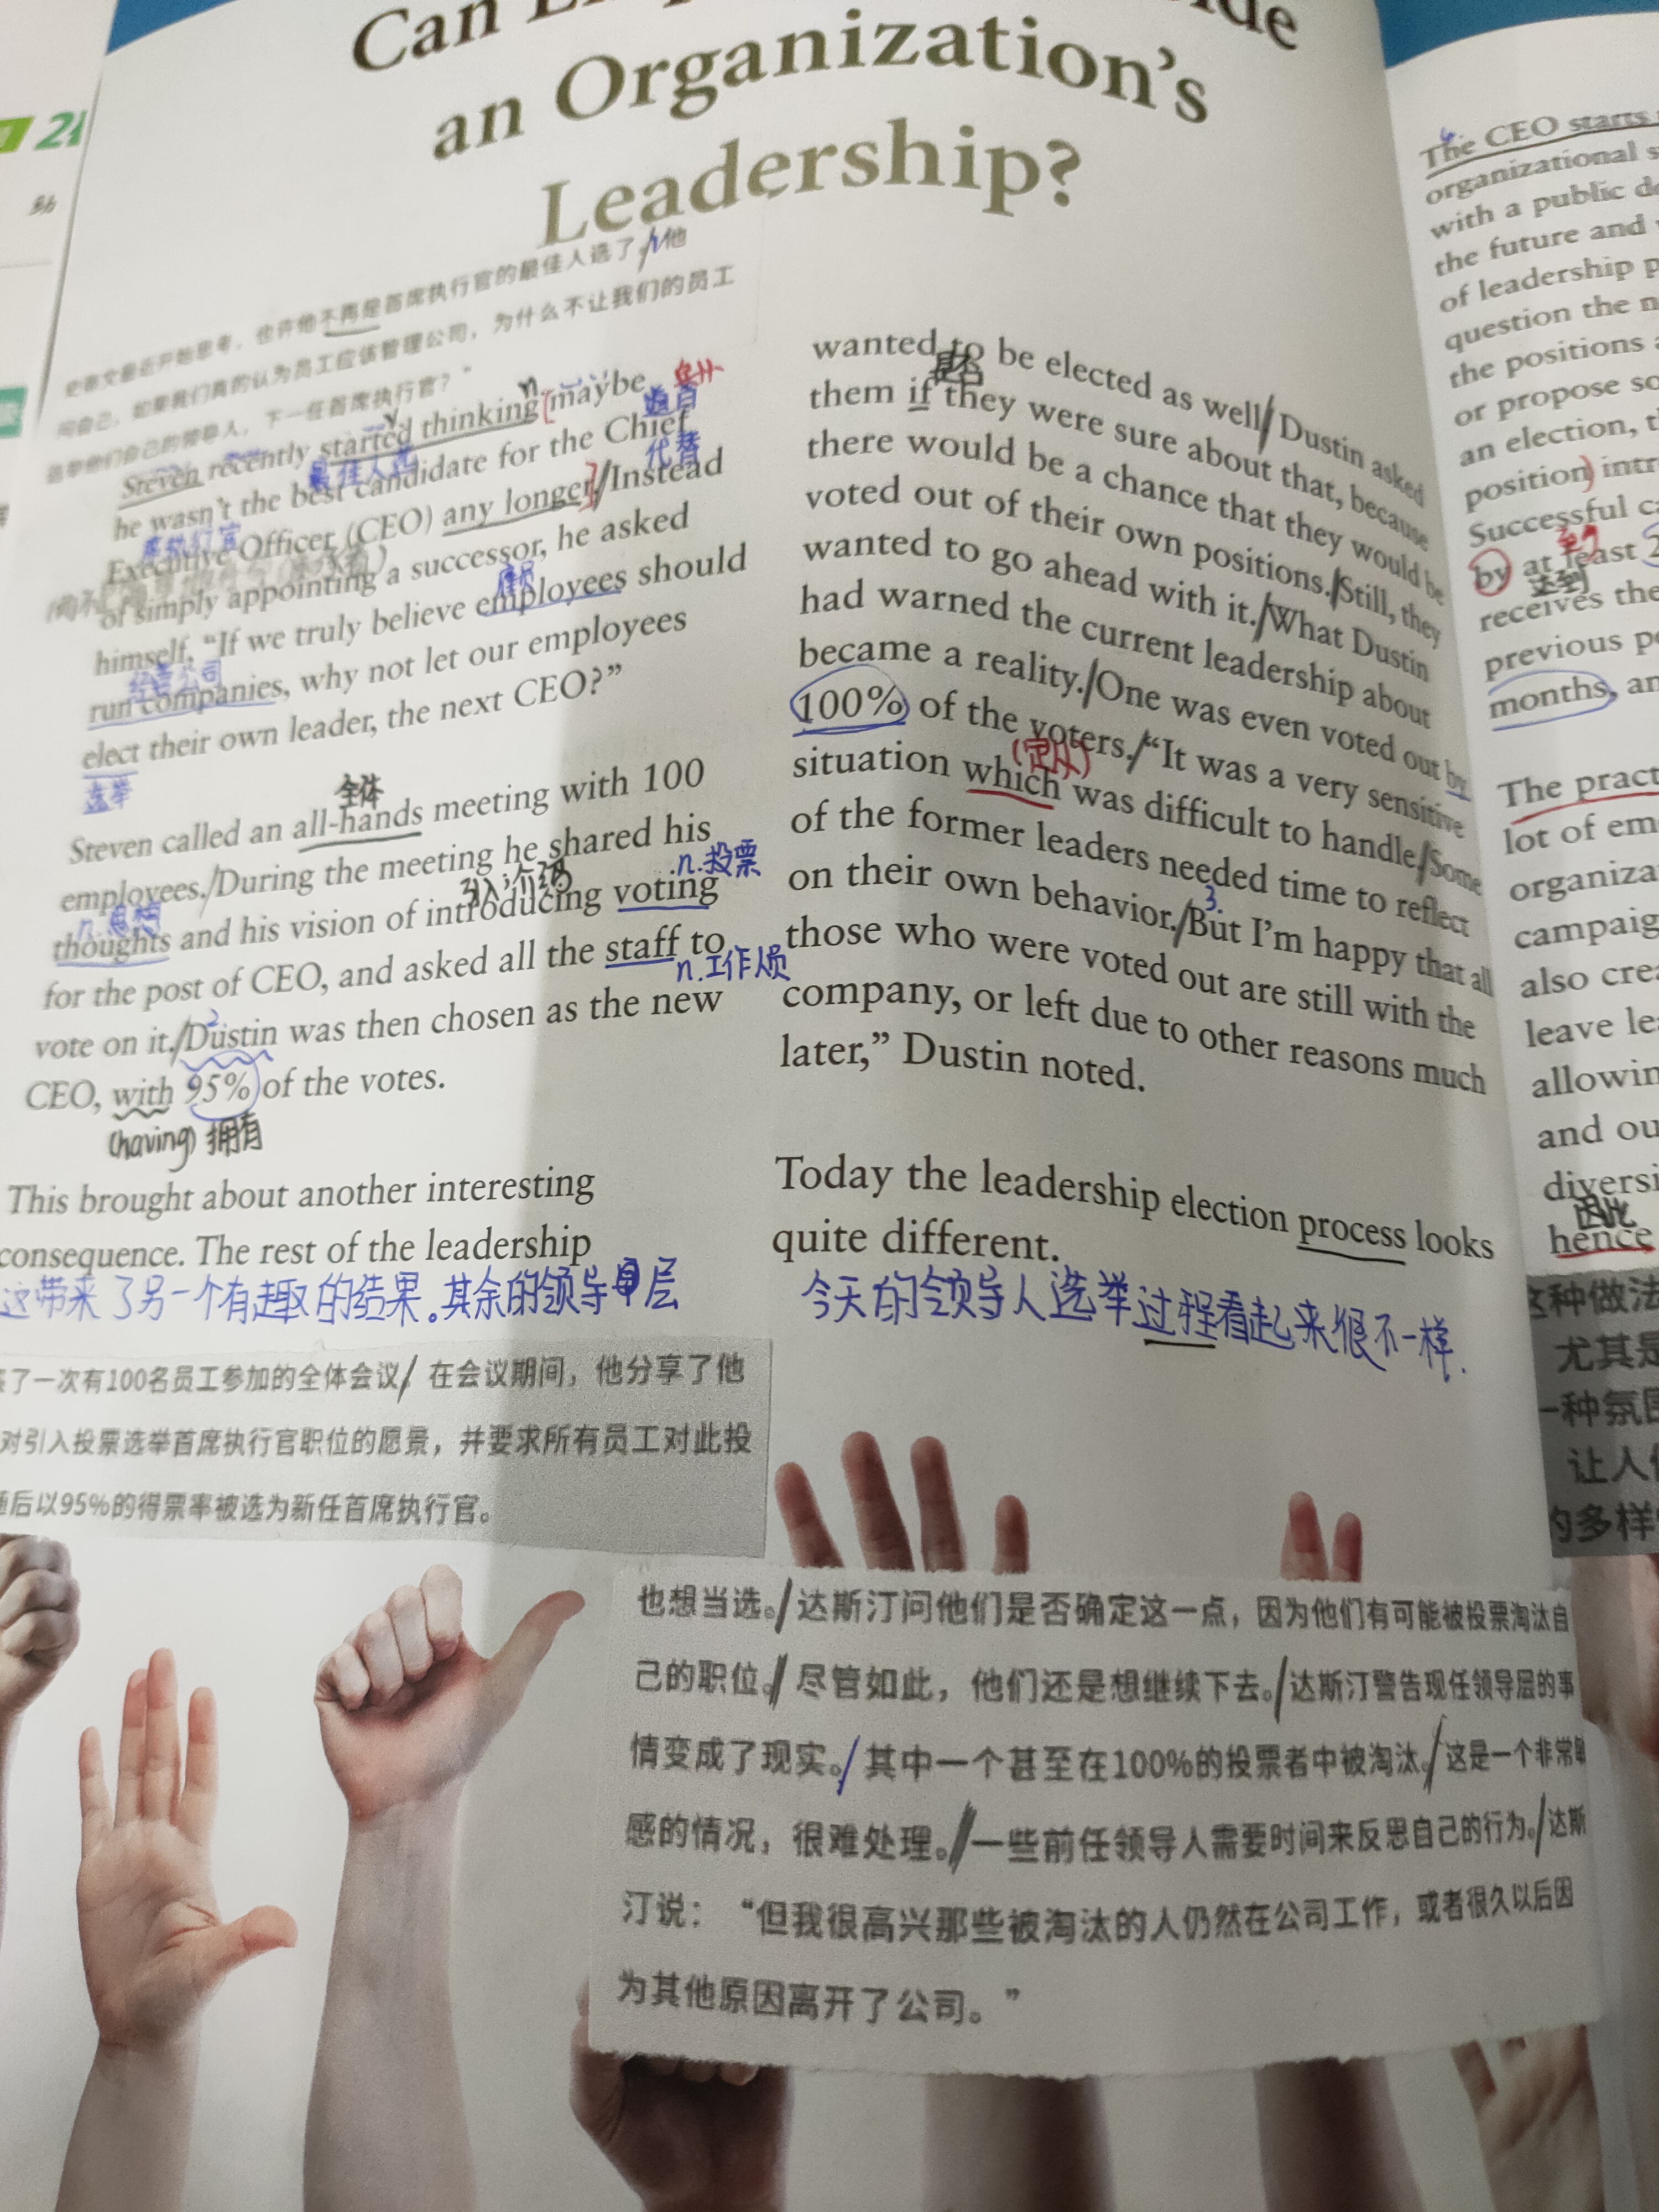 an Organization's
Leadership?
史蒂文最近开始思考，也许他不再是首席执行官的最佳人选了，他
问自己，如果我们真的认为员工应该管理公司，为什么不让我们的员工
选举他们自己的领导人，下一任首席执行官？"
Steven recently started thinking maybe
最佳人选
he wasn't the best candidate for the Chief
代替
Executive Officer (CEO) any longer. Instead
of simply appointing a successor, he asked
雇员
himself, "If we truly believe employees should
经营公司
run companies, why not let our employees
elect their own leader, the next CEO?"
选举
全体
Steven called an all-hands meeting with 100
employees. During the meeting he shared his
n.思想
引入;介绍
n.投票
thoughts and his vision of introducing voting
for the post of CEO, and asked all the staff to
n.工作人员
vote on it. Dustin was then chosen as the new
CEO, with 95% of the votes.
(having) 拥有
This brought about another interesting
consequence. The rest of the leadership
这带来了另一个有趣的结果。其余的领导层
了一次有100名员工参加的全体会议 在会议期间，他分享了他
对引入投票选举首席执行官职位的愿景，并要求所有员工对此投
后以95%的得票率被选为新任首席执行官。
wanted to be elected as well. Dustin asked
是否
them if they were sure about that, because
there would be a chance that they would be
voted out of their own positions. Still, they
wanted to go ahead with it. What Dustin
had warned the current leadership about
became a reality. One was even voted out by
100% of the voters. "It was a very sensitive
(定从)
situation which was difficult to handle. Some
of the former leaders needed time to reflect
3.
on their own behavior. But I'm happy that all
those who were voted out are still with the
company, or left due to other reasons much
later," Dustin noted.
Today the leadership election process looks
quite different.
今天的领导人选举过程看起来很不一样.
也想当选。达斯汀问他们是否确定这一点，因为他们有可能被投票淘汰自
己的职位。尽管如此，他们还是想继续下去。达斯汀警告现任领导层的事
情变成了现实。其中一个甚至在100%的投票者中被淘汰。这是一个非常敏
感的情况，很难处理。一些前任领导人需要时间来反思自己的行为。达斯
汀说："但我很高兴那些被淘汰的人仍然在公司工作，或者很久以后因
为其他原因离开了公司。"
The CEO starts
organizational
with a public
the future and
of leadership
question the
the positions
or propose
an election,
position
Successful
by at least
达到
receives the
previous
months,
The
lot of
also
leave
and
因此
hence
这种做法
尤其是
一种氛围
让人们
的多样